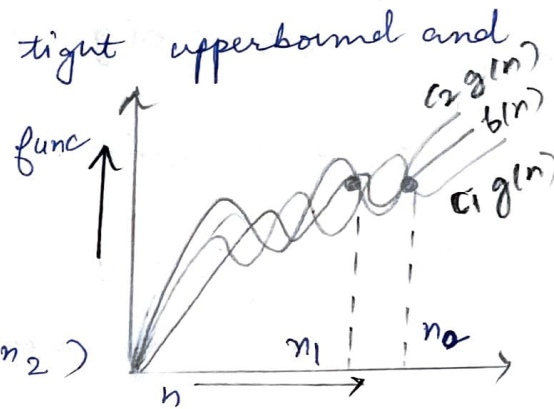 tight upperbound and
c2 g(n)
func
f(n)
c1 g(n)
n2)
n1
n0
n